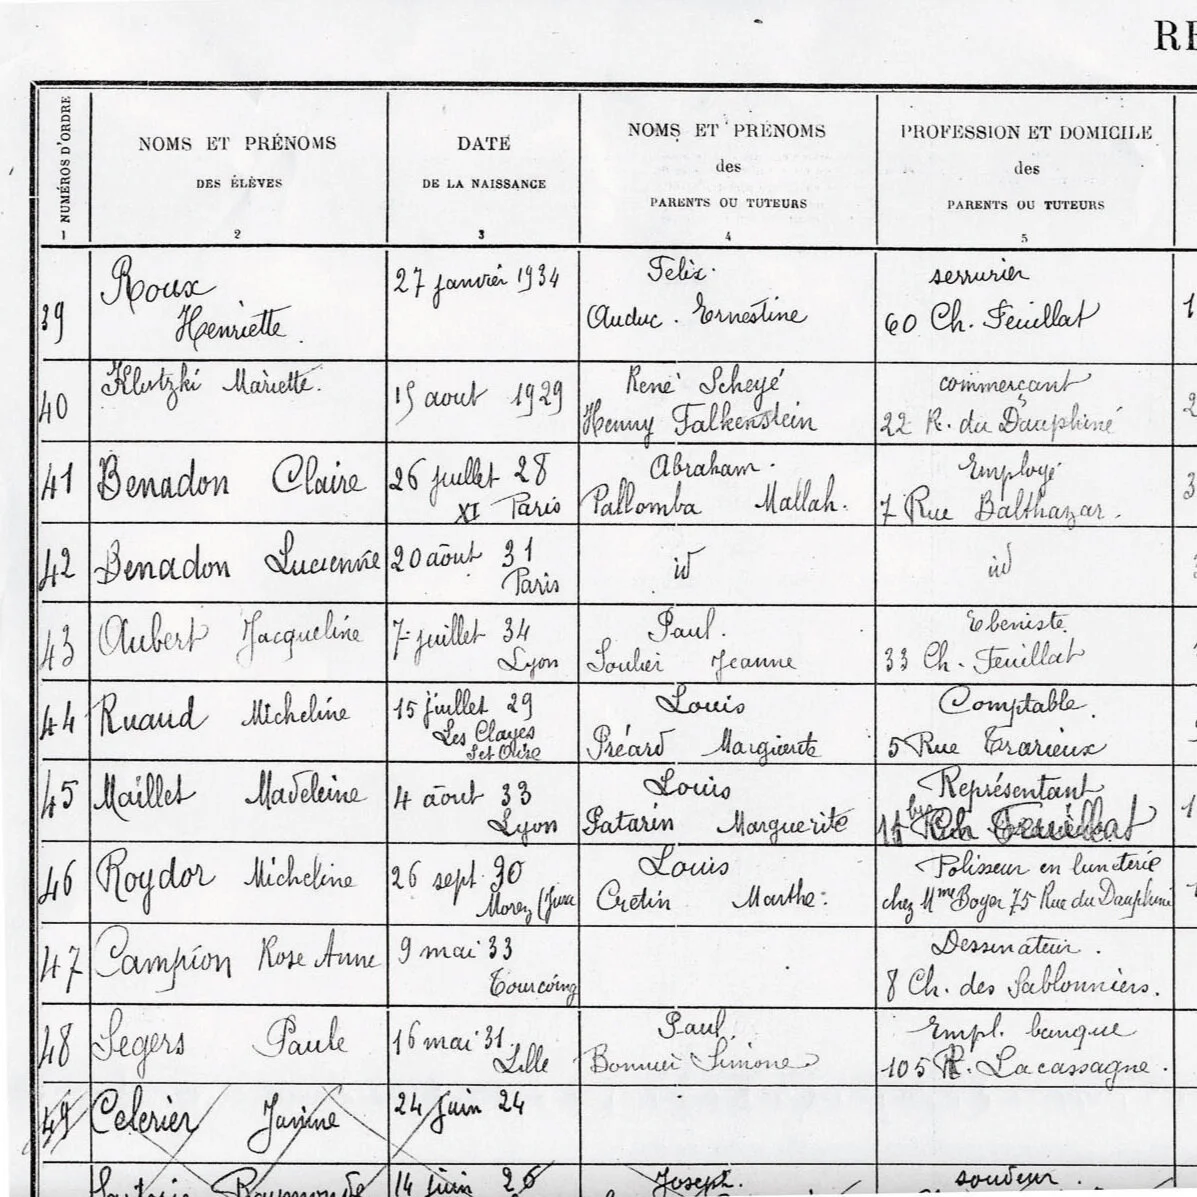 RE
NUMÉROS D'ORDRE
1
NOMS ET PRÉNOMS
DES ÉLÈVES
2
DATE
DE LA NAISSANCE
3
NOMS ET PRÉNOMS
des
PARENTS OU TUTEURS
4
PROFESSION ET DOMICILE
des
PARENTS OU TUTEURS
5
39
Roux
Henriette
27 janvier 1934
Felix
Auduc. Ernestine
serrurier
60 Ch. Feuillat
1
40
Klutzki Mariette.
15 aout 1929
René Scheyé
Henny Falkenstein
commerçant
22 R. du Dauphiné
2
41
Benadon Claire
26 juillet 28
XI Paris
Abraham.
Pallomba Mallah.
Employé
7 Rue Balthazar.
3
42
Benadon Lucienne
20 août 31
Paris
id
id
43
Aubert Jacqueline
7 juillet 34
Lyon
Paul.
Soulier Jeanne
Ebeniste
33 Ch. Feuillat
44
Ruaud Micheline
15 juillet 29
Les Clayes
S et Oise
Louis
Préard Marguerite
Comptable.
5 Rue Trarieux
45
Maillet Madeleine
4 août 33
Lyon
Louis
Patarin Marguerite
Représentant
Ch Feuillat
1
46
Roydor Micheline
26 sept. 30
Morez (Jura
Louis
Cretin Marthe
Polisseur en lunetterie
chez Mme Boyer 75 Rue du Dauphiné
47
Campion Rose Anne
9 mai 33
Tourcoing
Dessinateur.
8 Ch. des Sablonniers.
48
Segers Paule
16 mai 31
Lille
Paul
Bonnier Simone
Empl. banque
105 R. Lacassagne.
49
Celerier Janine
24 juin 24
Raymonde
14 juin 26
Joseph.
soudeur